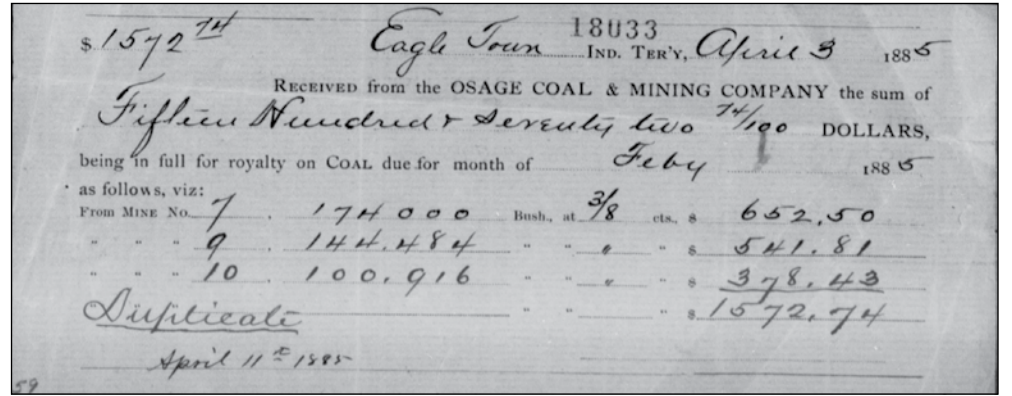 18033
$ 1572 74 Eagle Town IND. TER'Y, April 3 1885
RECEIVED from the OSAGE COAL & MINING COMPANY the sum of
Fifteen Hundred & Seventy two 74/100 DOLLARS,
being in full for royalty on COAL due for month of Feby 1885
as follows, viz:
From MINE No. 7 . 174000 Bush., at 3/8 cts., $ 652.50
" " " 9 . 144.484 " " " " $ 541.81
" " " 10 . 100.916 " " " " $ 378.43
Duplicate " " " $ 1572.74
April 11th 1885
59